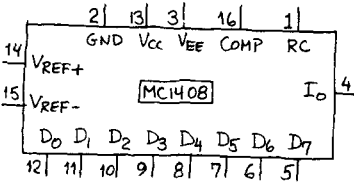 2 13 3 16 1
GND VCC VEE COMP RC
14 VREF+
MC1408
IO 4
15 VREF-
D0 D1 D2 D3 D4 D5 D6 D7
12 11 10 9 8 7 6 5